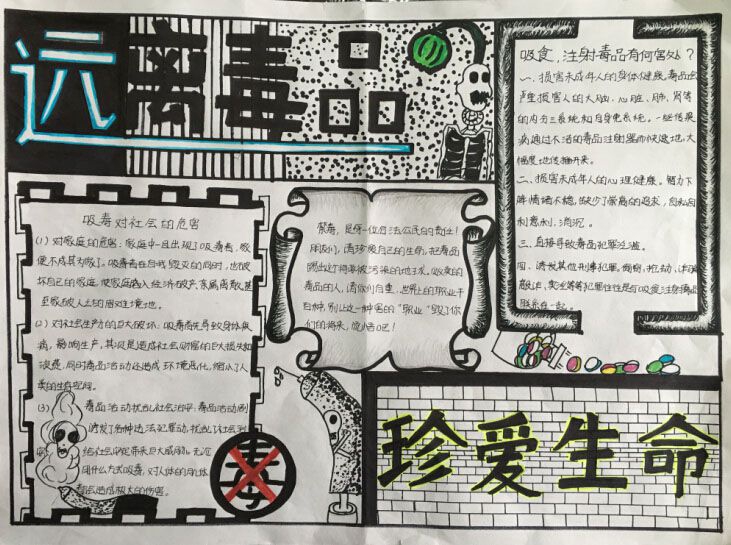 远离毒品
吸食，注射毒品有何害处？
一、损害未成年人的身体健康。毒品会
严重损害人的大脑、心脏、肺、肾脏
的内分三系统和自身免系统。一些传染
病通过不洁的毒品注射器而快速地，大
幅度地传播开来。
二、损害未成年人的心理健康。智力下
降情绪不稳，缺少了崇高的追求，自私自
利意利，消沉。
三、直接导致毒品犯罪泛滥。
四、诱发其他刑事犯罪。
联系在一起。
吸毒对社会的危害
(1) 对家庭的危害：家庭中一旦出现了吸毒者，家
便不成其为家了。吸毒者在自我毁灭的同时，也破
坏自己的家庭，使家庭陷入经济破产，亲属离散，甚
至家破人亡的困难境地。
(2) 对社会生产力的巨大破坏：吸毒首先导致身体疾
病，影响生产，其次是造成社会财富的巨大损失和
浪费，同时毒品活动还造成环境恶化，缩小了人
类的生存空间。
(3) 毒品活动扰乱社会治安：毒品活动加剧
诱发了各种违法犯罪活动，扰乱了社会治
给社会安定带来巨大威胁。无论
用什么方式吸毒，对人体的身体
都会造成极大的伤害。
禁毒，是每一位合法公民的责任！
朋友们，请珍爱自己的生命，把毒品
踢出这个将要被污染的地球。吸食
毒品的人，请你们自重，世界上的职业千
百种，别让这一种害的“职业”毁了你
们的将来，
毒
珍爱生命